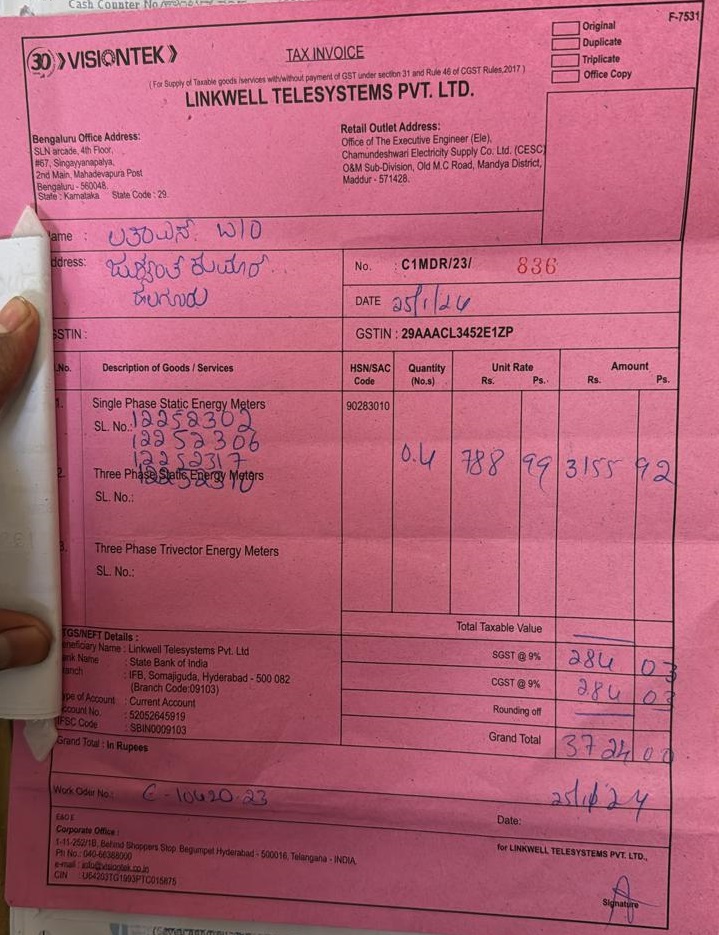 Cash Counter No
F-7531
30 VISIONTEK
TAX INVOICE
Original
Duplicate
Triplicate
Office Copy
( For Supply of Taxable goods /services with/without payment of GST under section 31 and Rule 46 of CGST Rules,2017 )
LINKWELL TELESYSTEMS PVT. LTD.
Bengaluru Office Address:
SLN arcade, 4th Floor,
#67, Singayyanapalya,
2nd Main, Mahadevapura Post
Bengaluru - 560048.
State : Karnataka State Code : 29.
Retail Outlet Address:
Office of The Executive Engineer (Ele),
Chamundeshwari Electricity Supply Co. Ltd. (CESC)
O&M Sub-Division, Old M.C Road, Mandya District,
Maddur - 571428.
ame : ಲತಾ ಎಸ್. W/O
ddress:
ಕುಮಾರ್
ಹಲಗೂರು
No. : C1MDR/23/ 836
DATE 25/1/24
GSTIN : GSTIN : 29AAACL3452E1ZP
.No. Description of Goods / Services HSN/SAC Code Quantity (No.s) Unit Rate Rs. Ps. Amount Rs. Ps.
1. Single Phase Static Energy Meters 90283010
SL. No.: 12252302
12252306
12252317
0.4 788 99 3155 92
2. Three Phase Static Energy Meters
12252310
SL. No.:
3. Three Phase Trivector Energy Meters
SL. No.:
Total Taxable Value
SGST @ 9% 284 03
CGST @ 9% 284 03
Rounding off
Grand Total 3724 00
TGS/NEFT Details :
eneficiary Name : Linkwell Telesystems Pvt. Ltd
ank Name : State Bank of India
ranch : IFB, Somajiguda, Hyderabad - 500 082
(Branch Code:09103)
ype of Account : Current Account
ccount No. : 52052645919
IFSC Code : SBIN0009103
Grand Total : In Rupees
Work Oder No : C-10420-23
Date: 25/1/24
E&O E
Corporate Office :
1-11-252/1B, Behind Shoppers Stop. Begumpet Hyderabad - 500016, Telangana - INDIA.
Ph No.: 040-66388000
e-mail : info@visiontek.co.in
CIN : U64203TG1993PTC015875
for LINKWELL TELESYSTEMS PVT. LTD.,
Signature